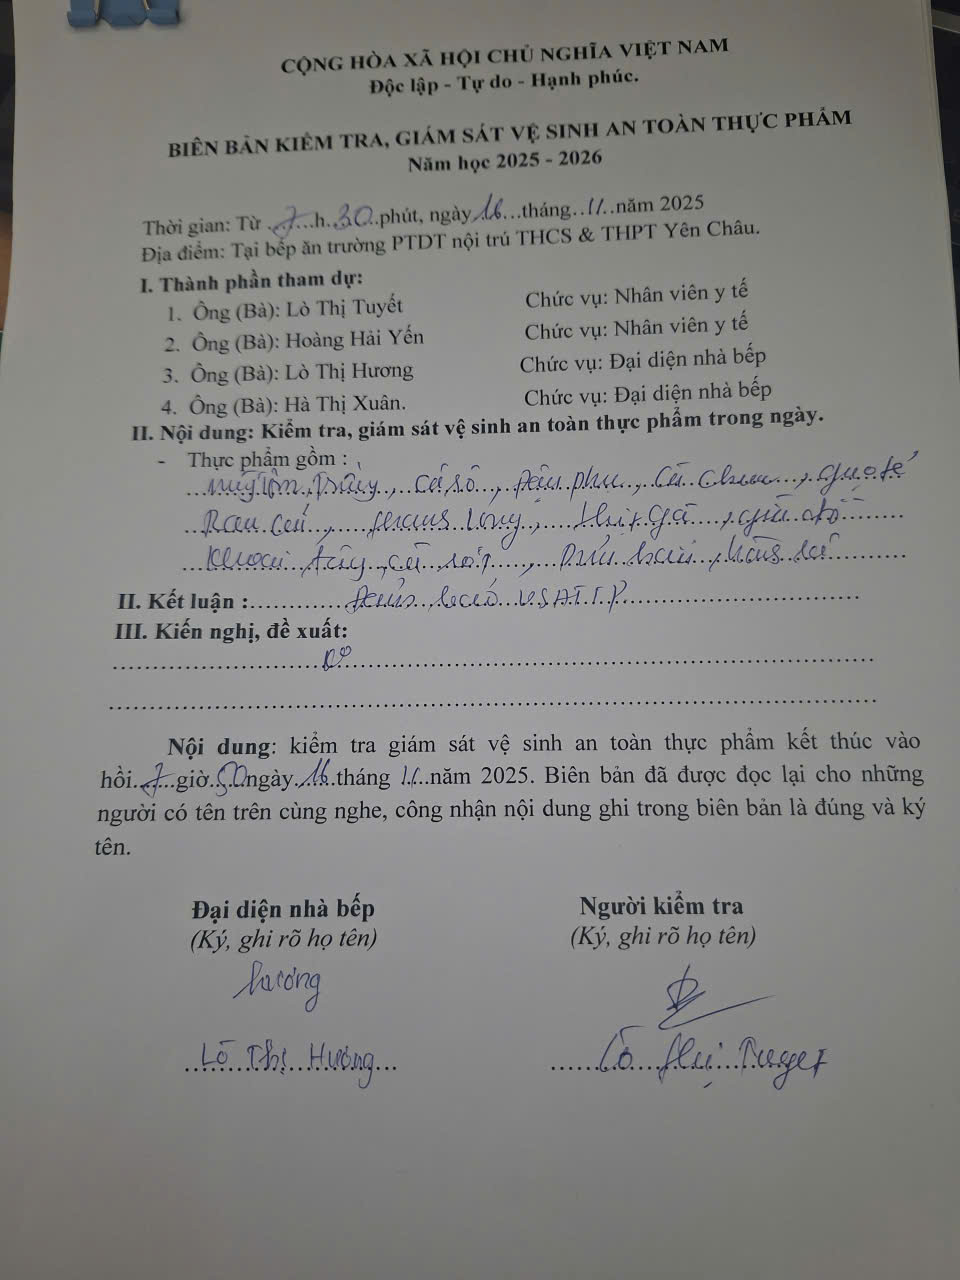 CỘNG HÒA XÃ HỘI CHỦ NGHĨA VIỆT NAM
Độc lập - Tự do - Hạnh phúc.
BIÊN BẢN KIỂM TRA, GIÁM SÁT VỆ SINH AN TOÀN THỰC PHẨM
Năm học 2025 - 2026
Thời gian: Từ 7 h 30 phút, ngày 16 tháng 11 năm 2025
Địa điểm: Tại bếp ăn trường PTDT nội trú THCS & THPT Yên Châu.
I. Thành phần tham dự:
1. Ông (Bà): Lò Thị Tuyết Chức vụ: Nhân viên y tế
2. Ông (Bà): Hoàng Hải Yến Chức vụ: Nhân viên y tế
3. Ông (Bà): Lò Thị Hương Chức vụ: Đại diện nhà bếp
4. Ông (Bà): Hà Thị Xuân. Chức vụ: Đại diện nhà bếp
II. Nội dung: Kiểm tra, giám sát vệ sinh an toàn thực phẩm trong ngày.
- Thực phẩm gồm :
Mỳ tôm, đậu phụ, Cà chua,
Rau cải, thịt gà, giá đỗ
Khoai tây, cà rốt,
II. Kết luận : Đảm bảo VSATTP
III. Kiến nghị, đề xuất:
Nội dung: kiểm tra giám sát vệ sinh an toàn thực phẩm kết thúc vào
hồi 7 giờ 50 ngày 16 tháng 11 năm 2025. Biên bản đã được đọc lại cho những
người có tên trên cùng nghe, công nhận nội dung ghi trong biên bản là đúng và ký
tên.
Đại diện nhà bếp Người kiểm tra
(Ký, ghi rõ họ tên) (Ký, ghi rõ họ tên)
Hương
Lò Thị Hương Lò Thị Tuyết